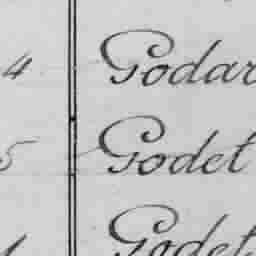 4 Godar
5 Godet
Godet